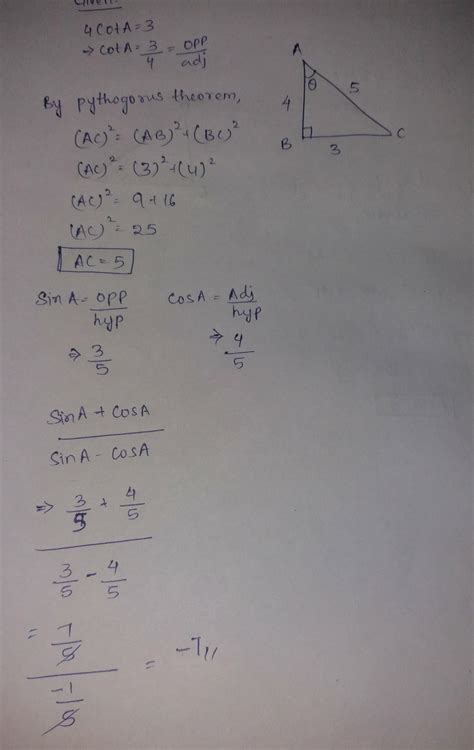 Given:
4CotA=3
⇒ CotA= 3/4 = opp/adj
By pythogorus theorem,
(AC)² = (AB)²+(BC)²
(AC)² = (3)²+(4)²
(AC)² = 9+16
(AC)² = 25
AC = 5
A
θ
4
5
B
3
C
SinA = opp/hyp
CosA = Adj/hyp
⇒ 3/5
⇒ 4/5
SinA + CosA
SinA - CosA
⇒ 3/5 + 4/5
3/5 - 4/5
= 7/5
-1/5
= -7//